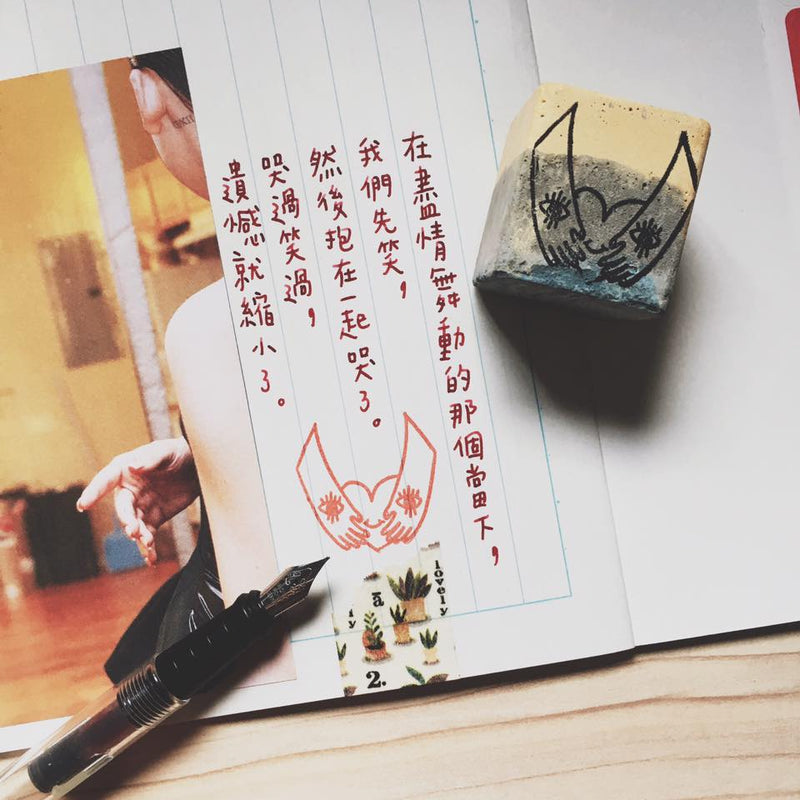 在盡情舞動的那個當下，
我們先笑，
然後抱在一起哭了。
哭過笑過，
遺憾就縮小了。
lovely
ly
a
2.